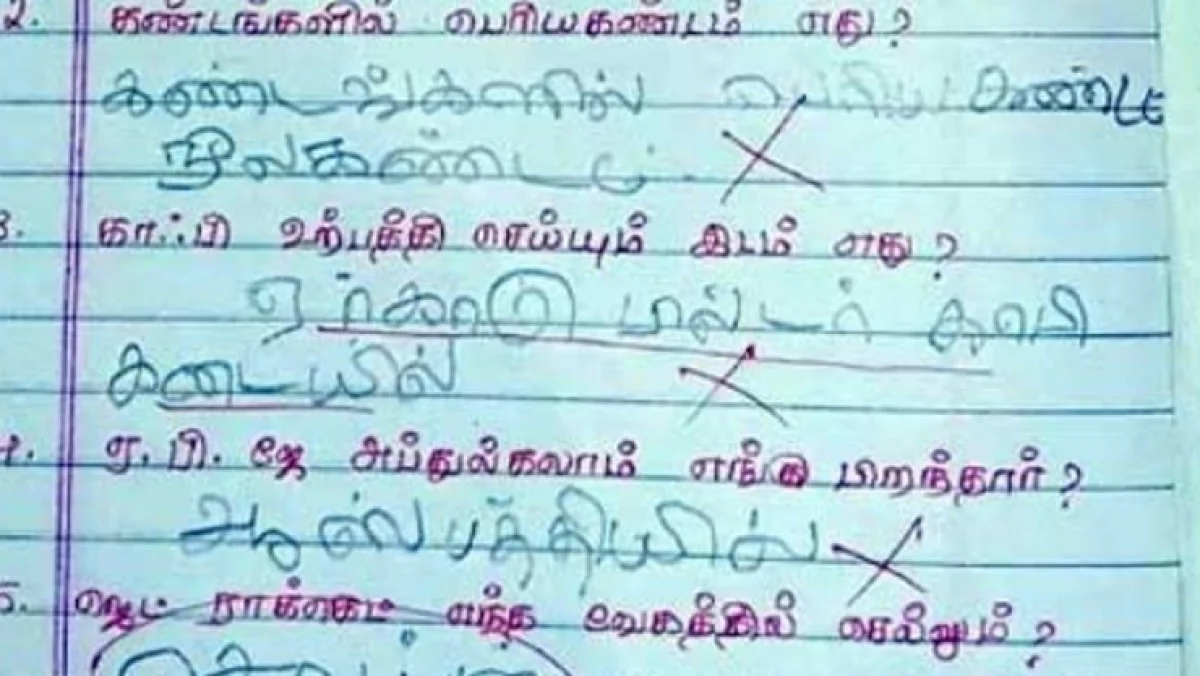 2. கண்டங்களில் பெரியகண்டம் எது?
கண்டங்களில் பெரிய கண்ட
நீலகண்டம்.
3. காஃபி உற்பத்தி செய்யும் இடம் எது?
ஏர்காடு மல்டர் காபி
கடையில்
4. ஏ.பி.ஜே அப்துல்கலாம் எங்கு பிறந்தார்?
ஆஸ்பத்தியில்
5. ஜெட் ராக்கெட் எந்த வேகத்தில் செல்லும்?